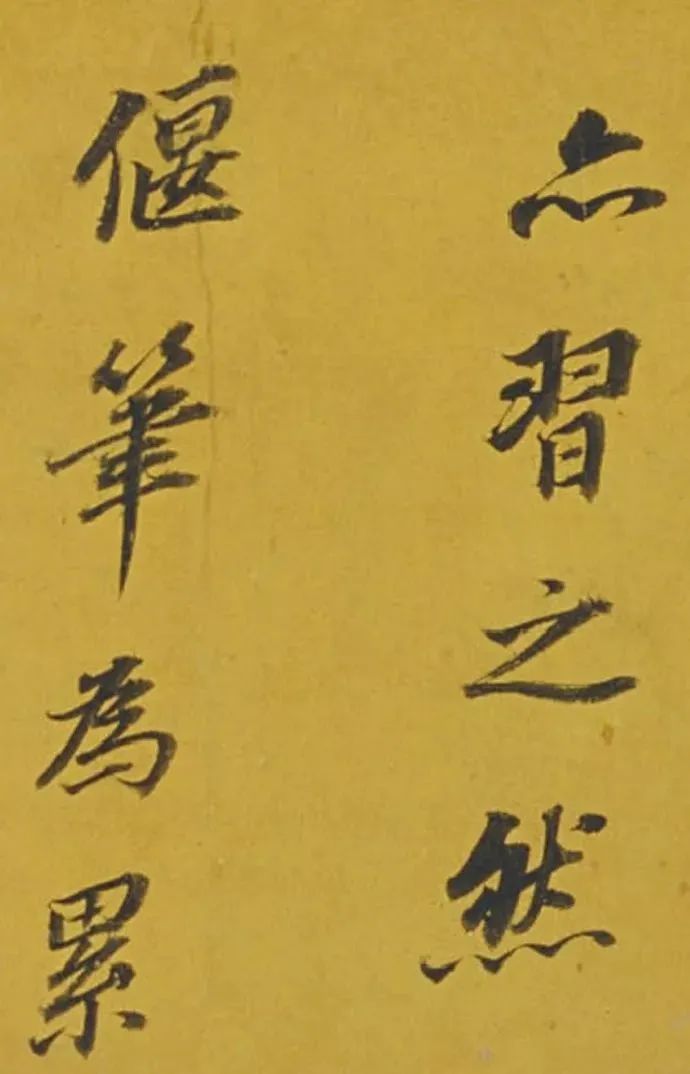 亦習之然
偃筆為累